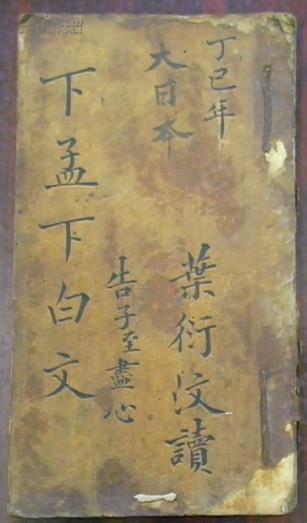 丁巳年
大日本
葉衍汶讀
告子至盡心
下孟下白文